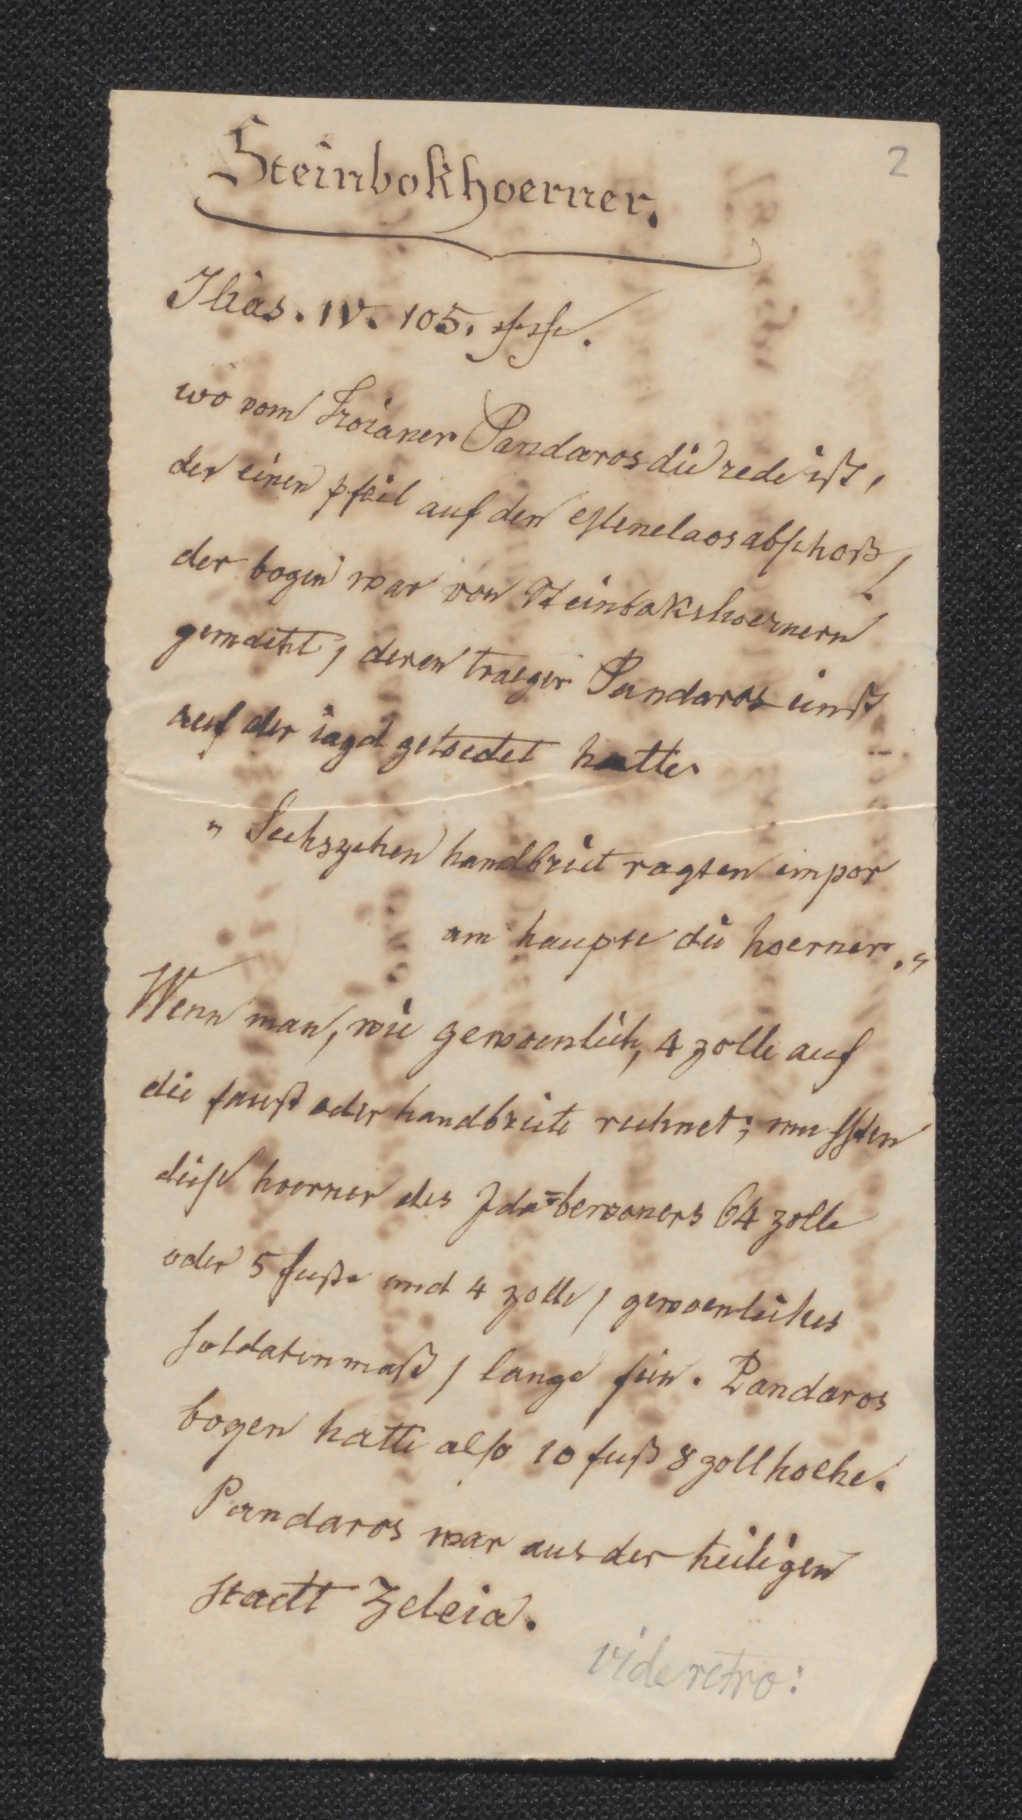 2
Steinbokhoerner.
Ilias. IV. 105. ff.
wo vom Troianer Pandaros die rede ist,
der einen pfeil auf den Menelaos abschoß!
der bogen war von Steinbokshoernern
gemacht, deren traeger Pandaros einst
auf der iagd getoedet hatte.
„ Sechszehen handbreit ragten empor
am haupte die hoerner. „
Wenn man, wie gewoenlich, 4 zolle auf
die faust oder handbreite rechnet; mussten
diese hoerner des Ida=bewoners 64 zolle
oder 5 fuße und 4 zolle / gewoenliches
soldatenmaß / lange sein. Pandaros
bogen hatte also 10 fuß 8 zoll hoehe.
Pandaros war aus der heiligen
stadt Zeleia.
vide retro: